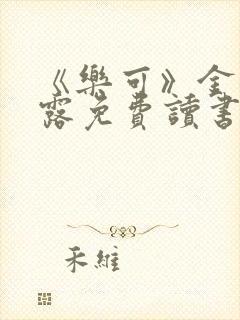 《樂可》金
露免費讀書
禾維